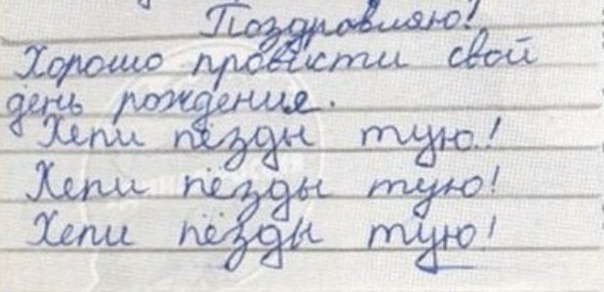 Поздровляю!
Хорошо провисти свой
день рождения.
Хепи пёзды тую!
Хепи пёзды тую!
Хепи пёзды тую!